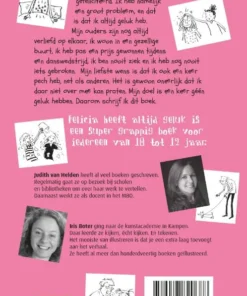 een groot probleem, en dat
is dat ik altijd geluk heb.
Mijn ouders zijn nog altijd
verliefd op elkaar, ik woon in een gezellige
buurt, ik heb pas een prijs gewonnen tijdens
een danswedstrijd, ik ben nooit ziek en ik heb nog nooit
iets gebroken. Mijn liefste wens is dat ik ook een keer
pech heb, net als anderen. Het is gewoon oneerlijk dat ik
daar niet over mee kan praten. Mijn doel is een keer géén
geluk hebben. Daarom schrijf ik dit boek.
Felicia heeft altijd geluk is
een super grappig boek voor
iedereen van
Judith van Helden heeft al veel boeken geschreven.
Regelmatig gaat ze op bezoek bij scholen
en bibliotheken om over haar werk te vertellen.
Daarnaast werkt ze als docent in het MBO.
Iris Boter ging naar de Kunstacademie in Kampen.
Daar leerde ze kijken, écht kijken. En tekenen.
Het mooiste van illustreren is dat je een extra laag toevoegt
aan het verhaal.
Ze heeft al meer dan honderdveertig boeken geïllustreerd.